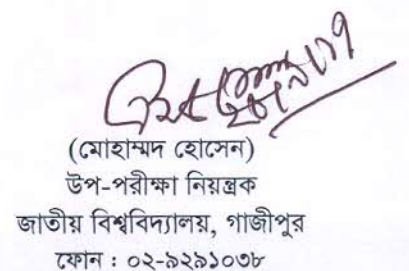 (মোহাম্মদ হোসেন)
উপ-পরীক্ষা নিয়ন্ত্রক
জাতীয় বিশ্ববিদ্যালয়, গাজীপুর
ফোন : ০২-৯২৯১০৩৮